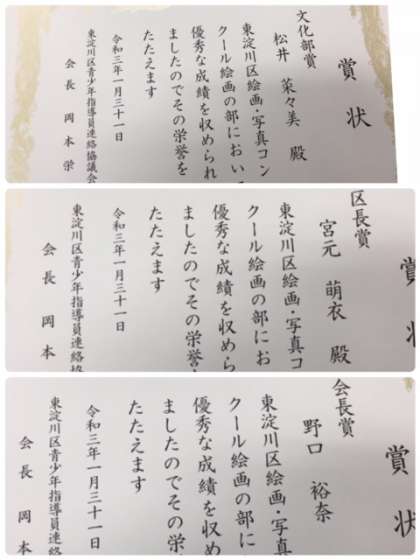 賞状
文化部賞
松井 菜々美 殿
東淀川区絵画・写真コン
クール絵画の部におい
優秀な成績を収められ
ましたのでその栄誉を
たたえます
令和三年一月三十一日
東淀川区青少年指導員連絡協議会
会長 岡本 栄
賞状
区長賞
宮元 萌衣 殿
東淀川区絵画・写真コ
クール絵画の部にお
優秀な成績を収めら
ましたのでその栄誉
たたえます
令和三年一月三十一日
東淀川区青少年指導員連絡協
会長 岡本
賞状
会長賞
野口 裕奈
東淀川区絵画・写真
クール絵画の部に
優秀な成績を収め
ましたのでその栄
たたえます
令和三年一月三十一日
東淀川区青少年指導員連絡
会長 岡本